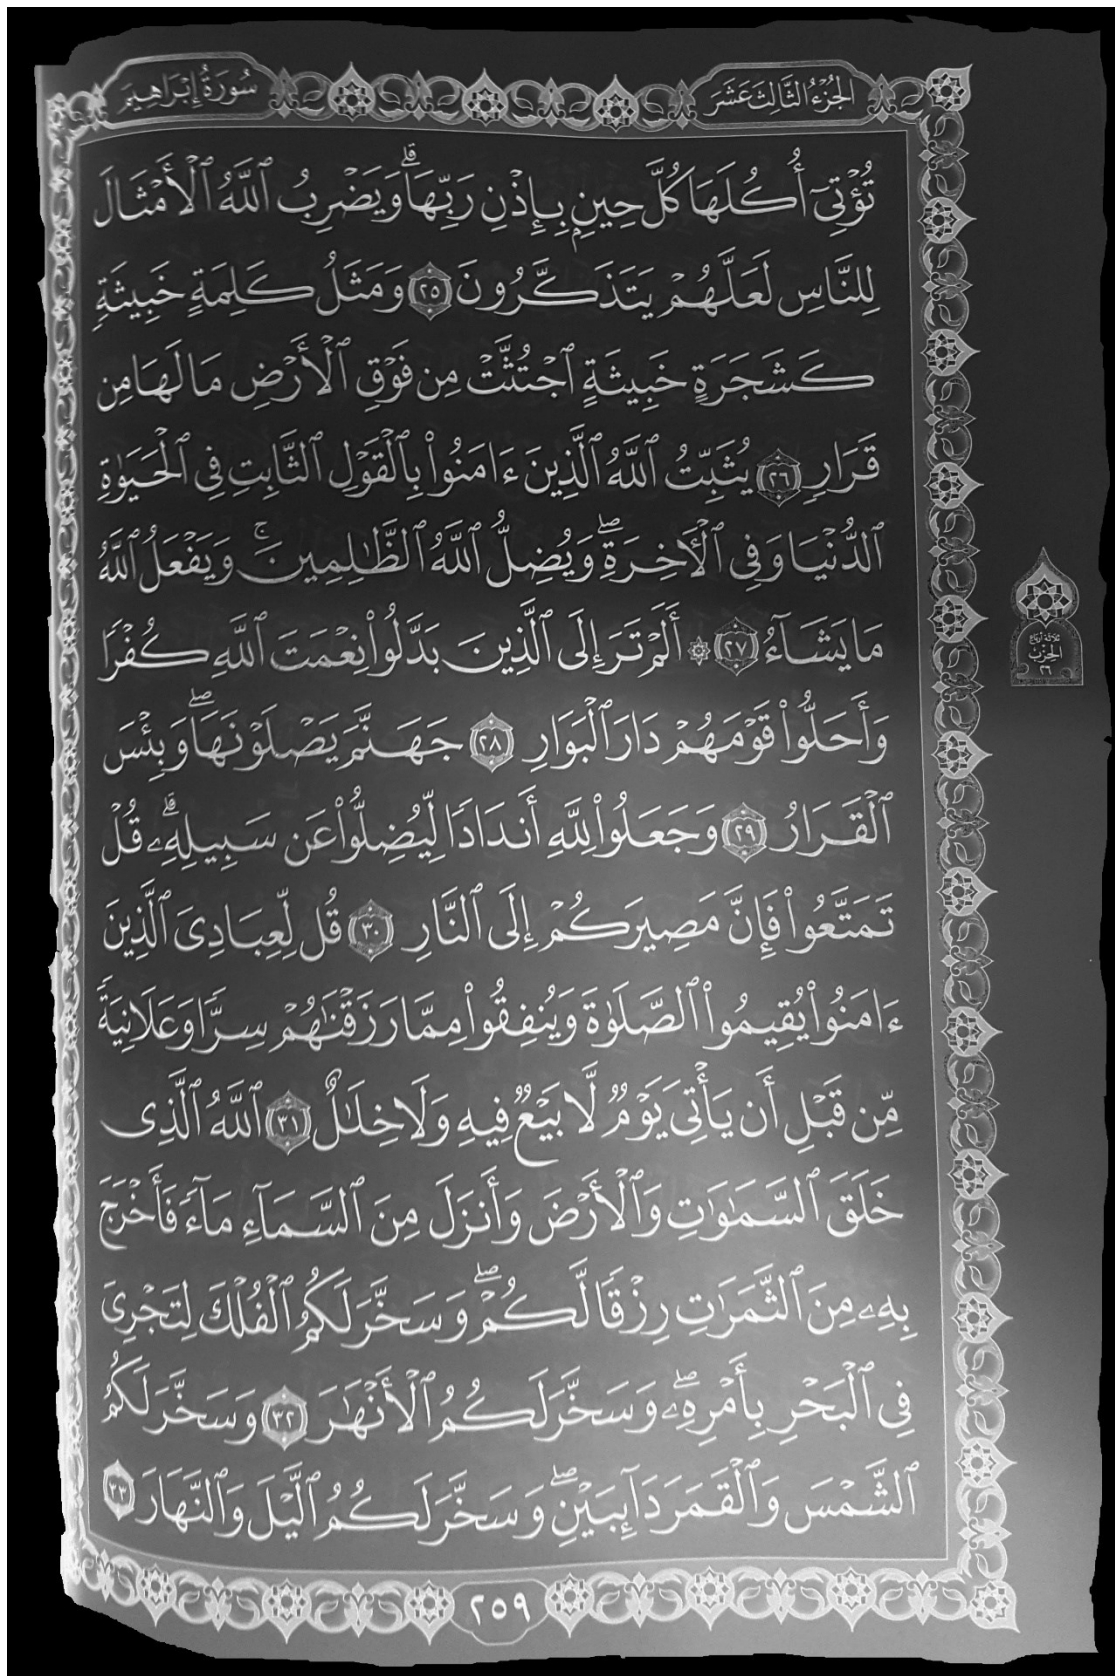 الجُزْءُ الثَّالِثَ عَشَرَ
سُورَةُ إِبْرَاهِيمَ
تُؤْتِىٓ أُكُلَهَا كُلَّ حِينِۭ بِإِذْنِ رَبِّهَاۗ وَيَضْرِبُ ٱللَّهُ ٱلْأَمْثَالَ
لِلنَّاسِ لَعَلَّهُمْ يَتَذَكَّرُونَ ٢٥ وَمَثَلُ كَلِمَةٍ خَبِيثَةٍ
كَشَجَرَةٍ خَبِيثَةٍ ٱجْتُثَّتْ مِن فَوْقِ ٱلْأَرْضِ مَا لَهَا مِن
قَرَارٍ ٢٦ يُثَبِّتُ ٱللَّهُ ٱلَّذِينَ ءَامَنُوا۟ بِٱلْقَوْلِ ٱلثَّابِتِ فِى ٱلْحَيَوٰةِ
ٱلدُّنْيَا وَفِى ٱلْءَاخِرَةِۖ وَيُضِلُّ ٱللَّهُ ٱلظَّٰلِمِينَۚ وَيَفْعَلُ ٱللَّهُ
مَا يَشَآءُ ٢٧ ۞ أَلَمْ تَرَ إِلَى ٱلَّذِينَ بَدَّلُوا۟ نِعْمَتَ ٱللَّهِ كُفْرًا
وَأَحَلُّوا۟ قَوْمَهُمْ دَارَ ٱلْبَوَارِ ٢٨ جَهَنَّمَ يَصْلَوْنَهَاۖ وَبِئْسَ
ٱلْقَرَارُ ٢٩ وَجَعَلُوا۟ لِلَّهِ أَندَادًا لِّيُضِلُّوا۟ عَن سَبِيلِهِۦۗ قُلْ
تَمَتَّعُوا۟ فَإِنَّ مَصِيرَكُمْ إِلَى ٱلنَّارِ ٣٠ قُل لِّعِبَادِىَ ٱلَّذِينَ
ءَامَنُوا۟ يُقِيمُوا۟ ٱلصَّلَوٰةَ وَيُنفِقُوا۟ مِمَّا رَزَقْنَٰهُمْ سِرًّا وَعَلَانِيَةً
مِّن قَبْلِ أَن يَأْتِىَ يَوْمٌ لَّا بَيْعٌ فِيهِ وَلَا خِلَٰلٌ ٣١ ٱللَّهُ ٱلَّذِى
خَلَقَ ٱلسَّمَٰوَٰتِ وَٱلْأَرْضَ وَأَنزَلَ مِنَ ٱلسَّمَآءِ مَآءً فَأَخْرَجَ
بِهِۦ مِنَ ٱلثَّمَرَٰتِ رِزْقًا لَّكُمْۖ وَسَخَّرَ لَكُمُ ٱلْفُلْكَ لِتَجْرِىَ
فِى ٱلْبَحْرِ بِأَمْرِهِۦۖ وَسَخَّرَ لَكُمُ ٱلْأَنْهَٰرَ ٣٢ وَسَخَّرَ لَكُمُ
ٱلشَّمْسَ وَٱلْقَمَرَ دَآئِبَيْنِۖ وَسَخَّرَ لَكُمُ ٱلَّيْلَ وَٱلنَّهَارَ ٣٣
ثلاثة أرباع
الحِزْب
٢٦
٢٥٩